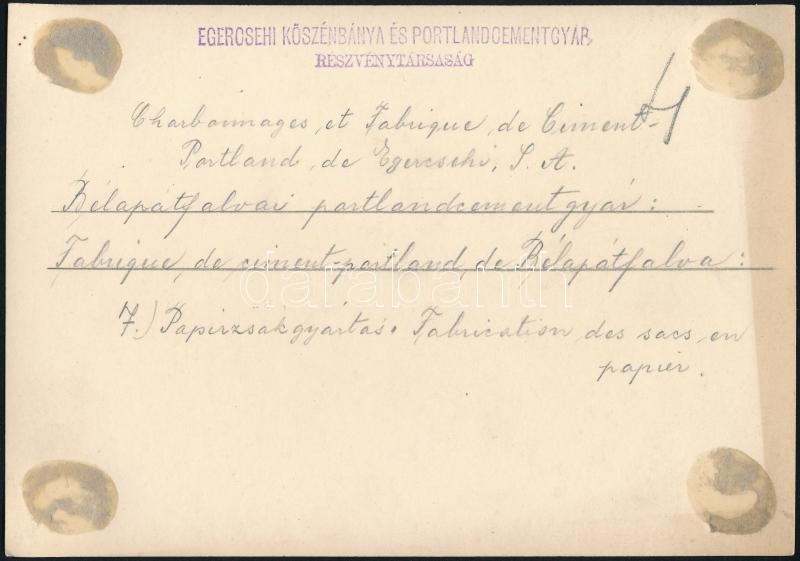 EGERCSEHI KŐSZÉNBÁNYA ÉS PORTLANDCEMENTGYÁR,
RÉSZVÉNYTÁRSASÁG
4
Charbonnages et Fabrique de Ciment-
Portland de Egercsehi, S. A.
Bélapátfalvai portlandcementgyár:
Fabrique de ciment-portland de Bélapátfalva:
darabanth
7.) Papirzsákgyártás. Fabrication des sacs en
papier.